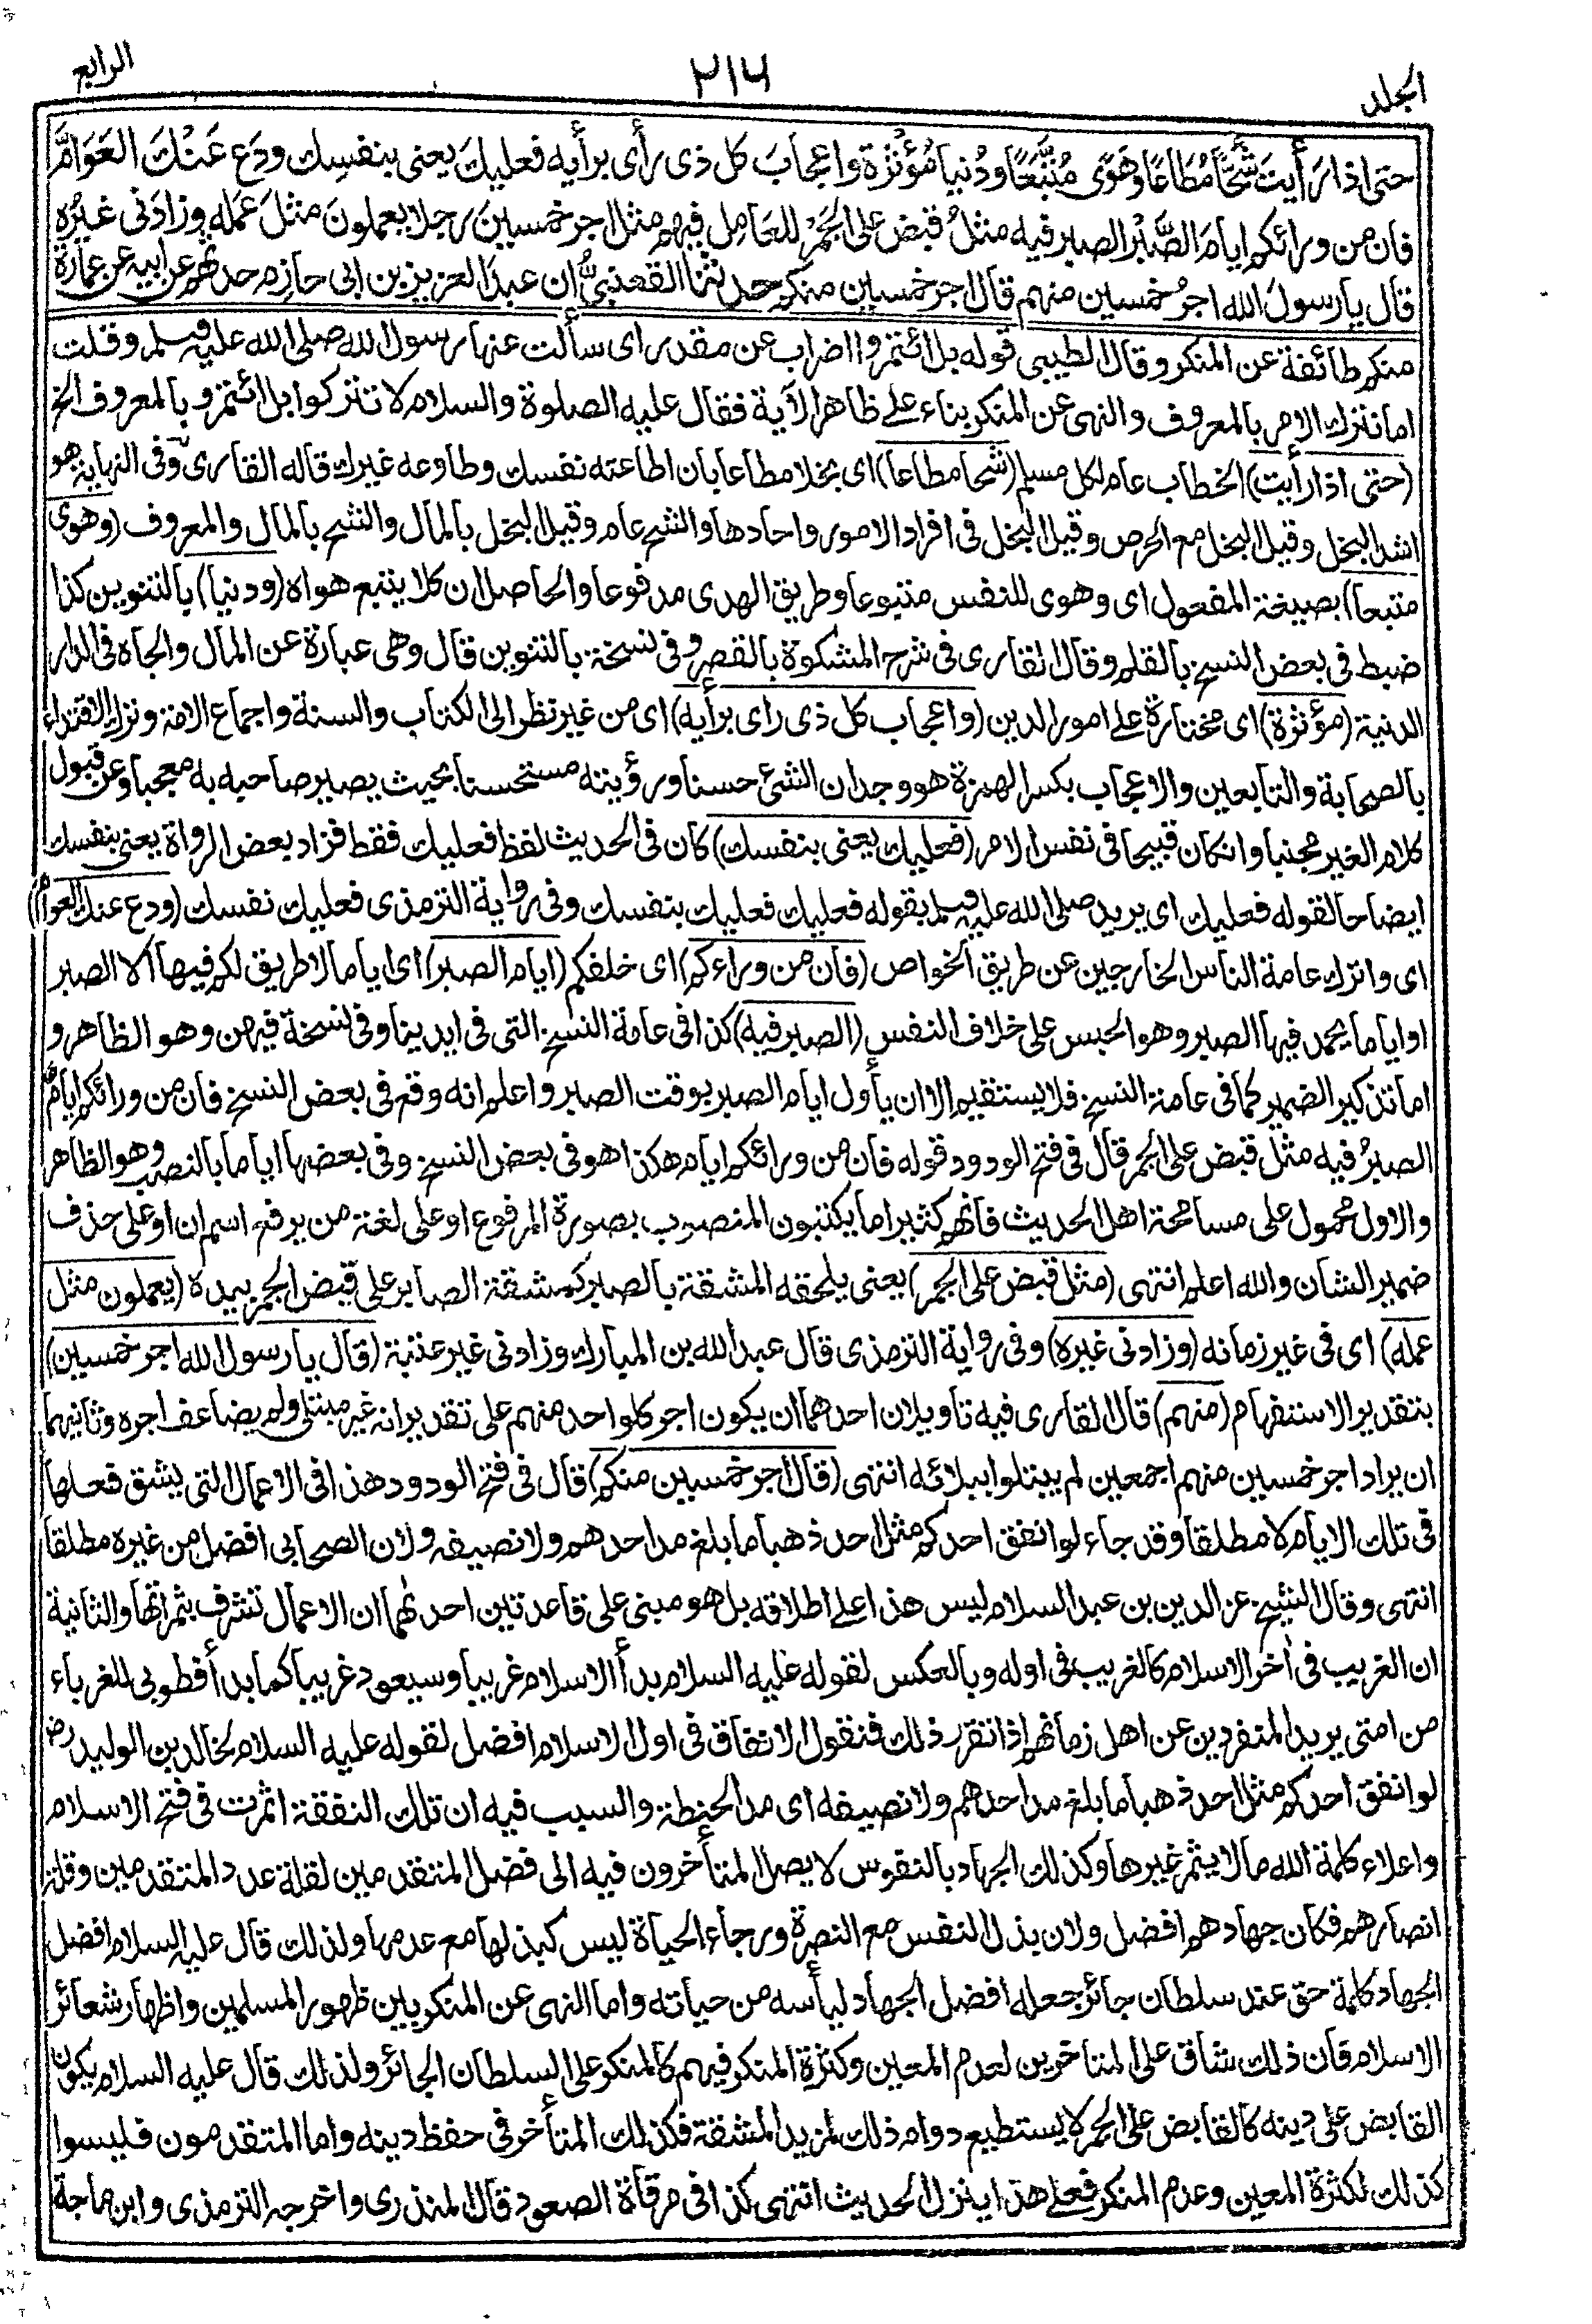 الجلد
٢١٦
الرابع
حتى اذا رَأَيتَ شُحًّا مُطَاعًا وَهَوًى مُتَّبَعًا ودُنيا مُؤْثَرَة واعجابَ كل ذى رأى برأيه فعليكَ يعنى بنفسِك ودَع عَنْكَ العَوَامَّ
فان من ورائكم ايامَ الصَّبْر الصبر فيه مثلُ قبض على الجَمْر للعَامِل فيهم مثل اجر خمسينَ رجلا يعملونَ مثلَ عَمَله وزادَنى غيرُه
قال يارسولَ الله اجرُ خمسين منهم قال اجر خمسين منكم حدثنا القعنبىُّ ان عبدَ العزيز بن ابى حازم حدثهم عن ابيه عن عمارة
منكم طائفة عن المنكر وقال الطيبى قوله بل ائتمروا اضراب عن مقدر اى سألت عنها رسول الله صلى الله عليه وسلم وقلت
اما نترك الامر بالمعروف والنهى عن المنكر بناء على ظاهر الآية فقال عليه الصلوة والسلام لا تتركوا بل ائتمروا بالمعروف الخ
(حتى اذا رأيت) الخطاب عام لكل مسلم (شحا مطاعا) اى بخلا مطاعا بان اطاعته نفسك وطاوعه غيرك قاله القارى وفى النهاية هو
اشد البخل وقيل البخل مع الحرص وقيل البخل فى افراد الامور واحادها والشح عام وقيل البخل بالمال والشح بالمال والمعروف (وهوى
متبعا) بصيغة المفعول اى وهوى للنفس متبوعا وطريق الهدى مدفوعا والحاصل ان كلا يتبع هواه (ودنيا) بالتنوين كذا
ضبط فى بعض النسخ بالقلم وقال القارى فى شرح المشكوة بالقصر وفى نسخة بالتنوين قال وهى عبارة عن المال والجاه فى الدار
الدنية (مؤثرة) اى مختارة على امور الدين (واعجاب كل ذى راى برأيه) اى من غير نظر الى الكتاب والسنة واجماع الامة وترك الاقتداء
بالصحابة والتابعين والاعجاب بكسر الهمزة هو وجدان الشئ حسنا ورؤيته مستحسنا بحيث يصير صاحبه به معجبا وعن قبول
كلام الغير مجنبا وانكان قبيحا فى نفس الامر (فعليك يعنى بنفسك) كان فى الحديث لفظ فعليك فقط فزاد بعض الرواة يعنى بنفسك
ايضاحا لقوله فعليك اى يريد صلى الله عليه وسلم بقوله فعليك فعليك بنفسك وفى رواية الترمذى فعليك نفسك (ودع عنك العوام)
اى واترك عامة الناس الخارجين عن طريق الخواص (فان من وراءكم) اى خلفكم (ايام الصبر) اى اياما لا طريق لكم فيها الا الصبر
او اياما يحمد فيها الصبر وهو الحبس على خلاف النفس (الصبر فيه) كذا فى عامة النسخ التى فى ايدينا وفى نسخة فيهن وهو الظاهر و
اما تذكير الضمير كما فى عامة النسخ فلا يستقيم الا ان يأول ايام الصبر بوقت الصبر واعلم انه وقع فى بعض النسخ فان من ورائكم ايامٌ
الصبرُ فيه مثل قبض على الجمر قال فى فتح الودود قوله فان من ورائكم ايام هكذا هو فى بعض النسخ وفى بعضها اياما بالنصب وهو الظاهر
والاول محمول على مسامحة اهل الحديث فانهم كثيرا ما يكتبون المنصوب بصورة المرفوع او على لغة من يرفع اسم ان او على حذف
ضمير الشان والله اعلم انتهى (مثل قبض على الجمر) يعنى يلحقه المشقة بالصبر كمشقة الصابر على قبض الجمر بيده (يعملون مثل
عمله) اى فى غير زمانه (وزادنى غيره) وفى رواية الترمذى قال عبد الله بن المبارك وزادنى غير عتبة (قال يا رسول الله اجر خمسين)
بتقدير الاستفهام (منهم) قال القارى فيه تاويلان احدهما ان يكون اجر كل واحد منهم على تقدير انه غير مبتلى ولم يضاعف اجره وثانيهما
ان يراد اجر خمسين منهم اجمعين لم يبتلوا ببلائه انتهى (قال اجر خمسين منكم) قال فى فتح الودود هذا فى الاعمال التى يشق فعلها
فى تلك الايام لا مطلقا وقد جاء لو انفق احدكم مثل احد ذهبا ما بلغ مد احدهم ولا نصيفه ولان الصحابى افضل من غيره مطلقا
انتهى وقال الشيخ عز الدين بن عبد السلام ليس هذا على اطلاقه بل هو مبنى على قاعدتين احدهما ان الاعمال تشرف بثمراتها والثانية
ان الغريب فى آخر الاسلام كالغريب فى اوله وبالعكس لقوله عليه السلام بدأ الاسلام غريبا وسيعود غريبا كما بدأ فطوبى للغرباء
من امتى يريد المتفردين عن اهل زمانهم اذا تقرر ذلك فنقول الانفاق فى اول الاسلام افضل لقوله عليه السلام لخالد بن الوليد رض
لو انفق احدكم مثل احد ذهبا ما بلغ مد احدهم ولا نصيفه اى مد الحنطة والسبب فيه ان تلك النفقة اثمرت فى فتح الاسلام
واعلاء كلمة الله ما لا يثمر غيرها وكذلك الجهاد بالنفوس لا يصل المتأخرون فيه الى فضل المتقدمين لقلة عدد المتقدمين وقلة
انصارهم فكان جهادهم افضل ولان بذل النفس مع النصرة ورجاء الحياة ليس كبذلها مع عدمها ولذلك قال عليه السلام افضل
الجهاد كلمة حق عند سلطان جائر جعله افضل الجهاد ليأسه من حياته واما النهى عن المنكر بين ظهور المسلمين واظهار شعائر
الاسلام فان ذلك شاق على المتاخرين لعدم المعين وكثرة المنكر فيهم كالمنكر على السلطان الجائر ولذلك قال عليه السلام يكون
القابض على دينه كالقابض على الجمر لا يستطيع دوام ذلك لمزيد المشقة فكذلك المتأخر فى حفظ دينه واما المتقدمون فليسوا
كذلك لكثرة المعين وعدم المنكر فعلى هذا ينزل الحديث انتهى كذا فى مرقاة الصعود قال المنذرى واخرجه الترمذى وابن ماجة